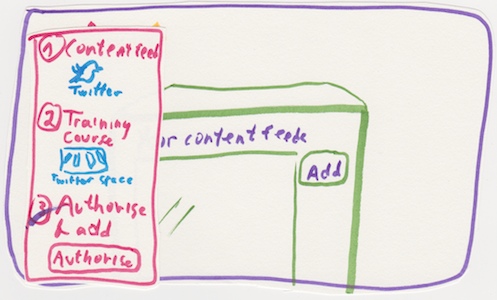 1 Content feed
Twitter
2 Training
Course
Twitter space
3 Authorise
& add
Authorise
or content feeds
Add